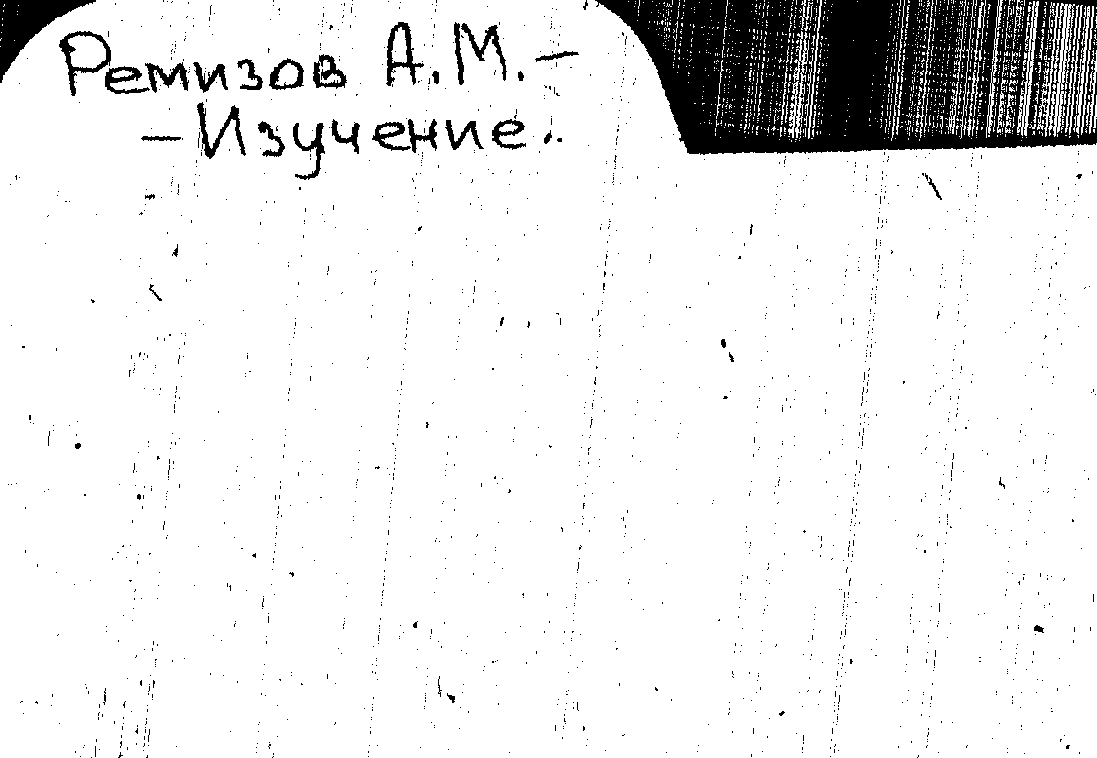 Ремизов А.М. –
– Изучение..